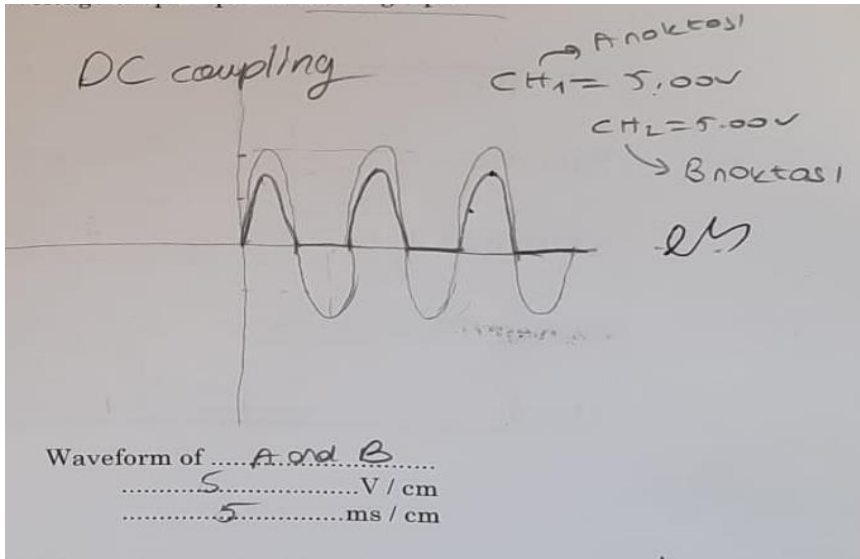 DC coupling
A noktası
CH1 = 5.00V
CH2 = 5.00V
B noktası
Waveform of ..... A and B ..............
.............5......................V / cm
.................5.................ms / cm